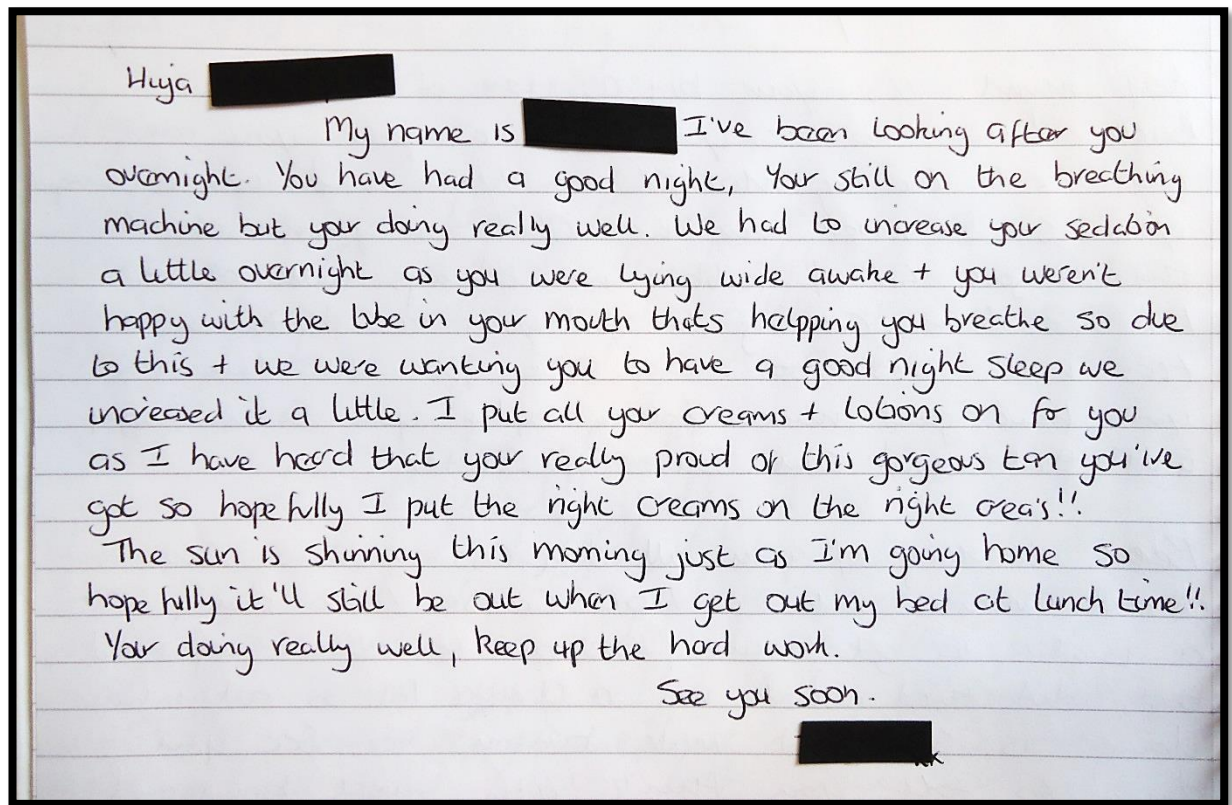 Huja
My name is I've been looking after you
overnight. You have had a good night, Your still on the breathing
machine but your doing really well. We had to increase your sedation
a little overnight as you were lying wide awake + you weren't
happy with the tube in your mouth thats helpping you breathe so due
to this + we were wanting you to have a good night sleep we
increased it a little. I put all your creams + lotions on for you
as I have heard that your really proud of this gorgeous tan you've
got so hopefully I put the right creams on the right area's!!
The sun is shinning this morning just as I'm going home so
hopefully it'll still be out when I get out my bed at lunch time!!
Your doing really well, keep up the hard work.
See you soon.